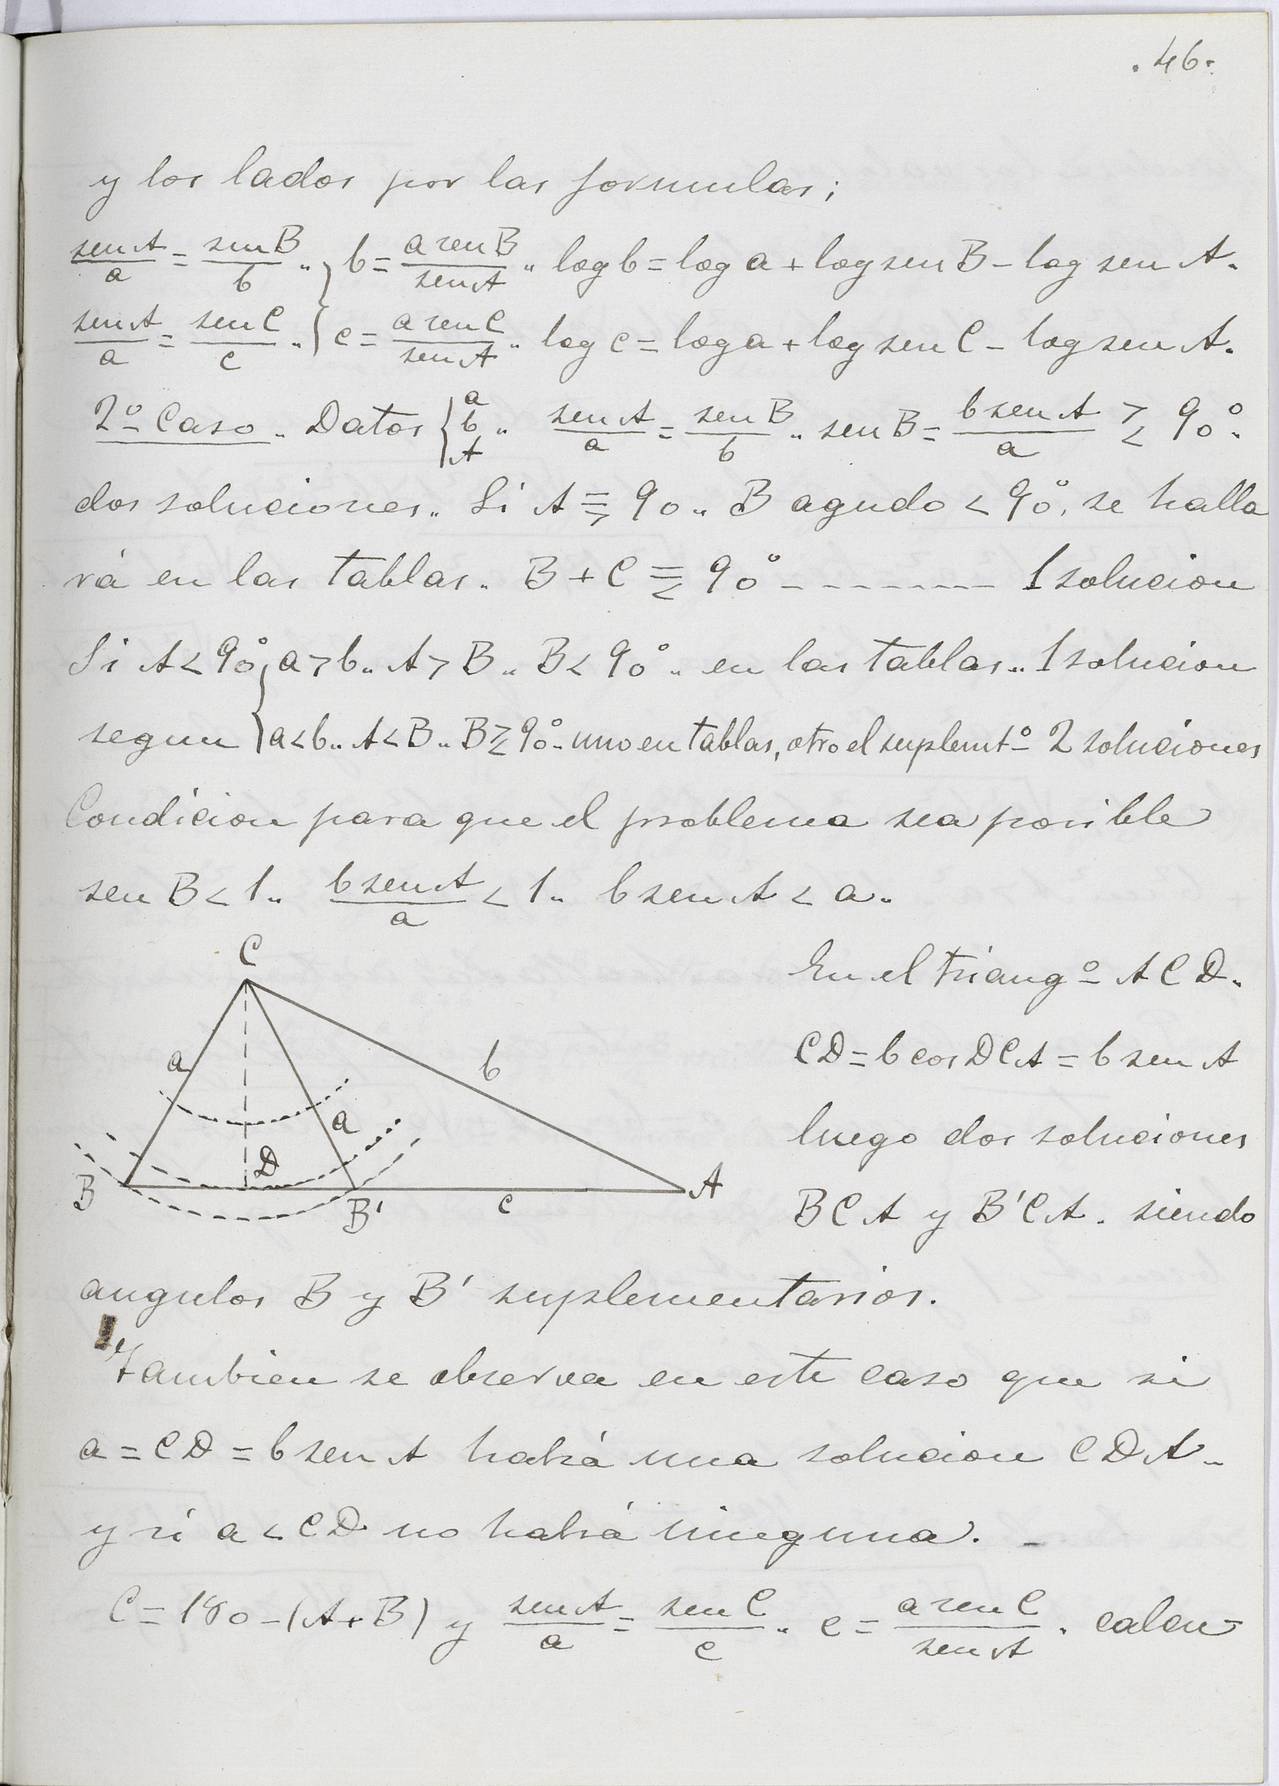 . 46.
y los lados por las formulas;
senA/a = senB/b .. } b = a senB/senA .. log b = log a + log sen B - log sen A.
senA/a = senC/c .. { c = a senC/senA .. log c = log a + log sen C - log sen A.
2º Caso. Datos { a b A .. senA/a = senB/b .. sen B = b sen A/a >< 90º.
dos soluciones.. Si A => 90.. B agudo < 90º, se halla
rá en las tablas.. B + C =< 90º - - - - - - - - 1 solucion
Si A < 90º { a > b.. A > B.. B < 90º .. en las tablas.. 1 solucion
segun { a < b.. A < B.. B >< 90º.. uno en tablas, otro el suplemtº 2 soluciones
Condicion para que el problema sea posible
sen B < 1.. b sen A/a < 1.. b sen A < a..
En el triangº A C D.
CD = b cos DCA = b sen A
luego dos soluciones
BCA y B'CA. siendo
C
a
b
a
D
B
B'
c
A
angulos B y B' suplementarios.
Tambien se observa en este caso que si
a = CD = b sen A habrá una solucion C D A..
y si a < CD no habrá ninguna. -
C = 180 - (A + B) y senA/a = senC/c .. c = a senC/senA . calcu-